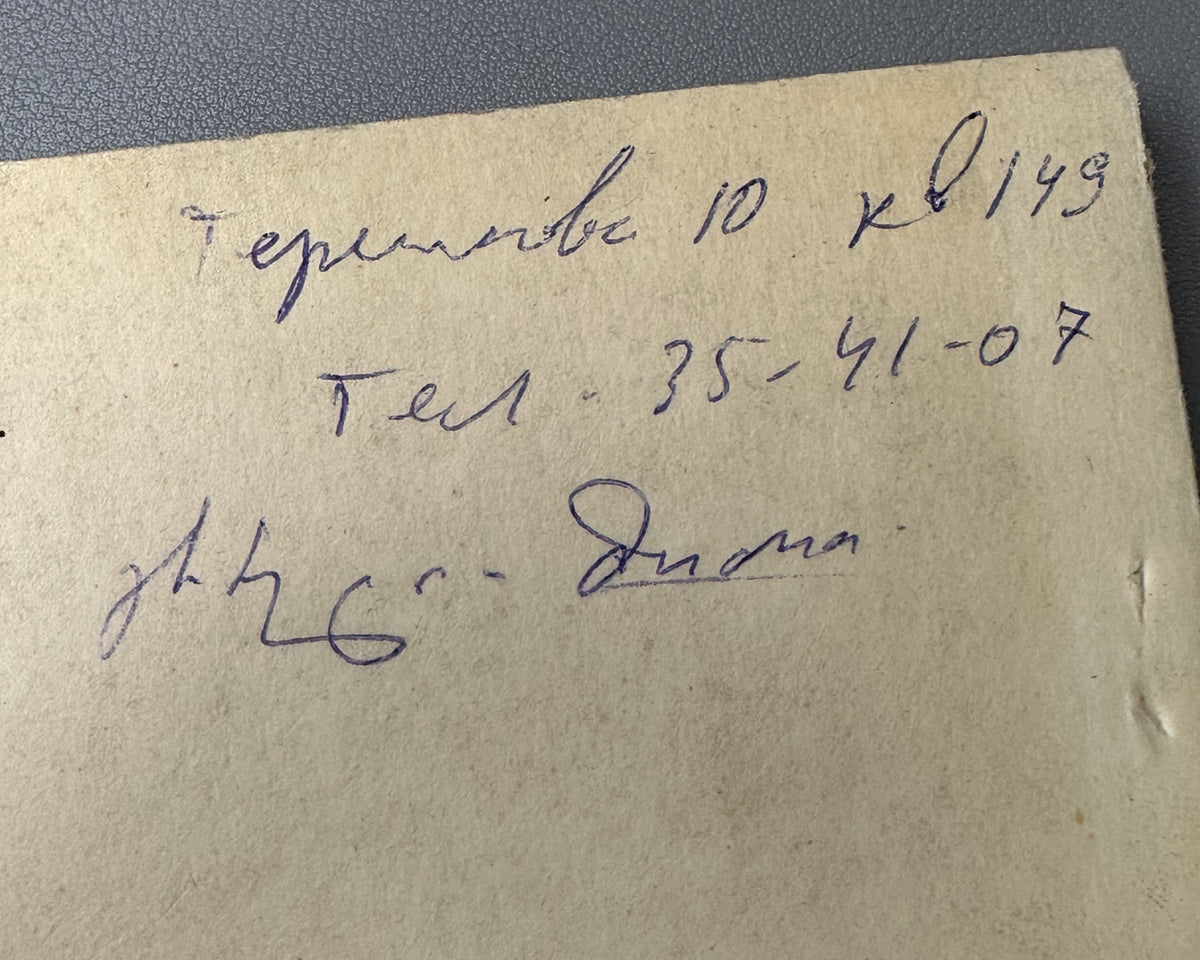 Терешкова 10 кв 149
Тел. 35-41-07
Дима